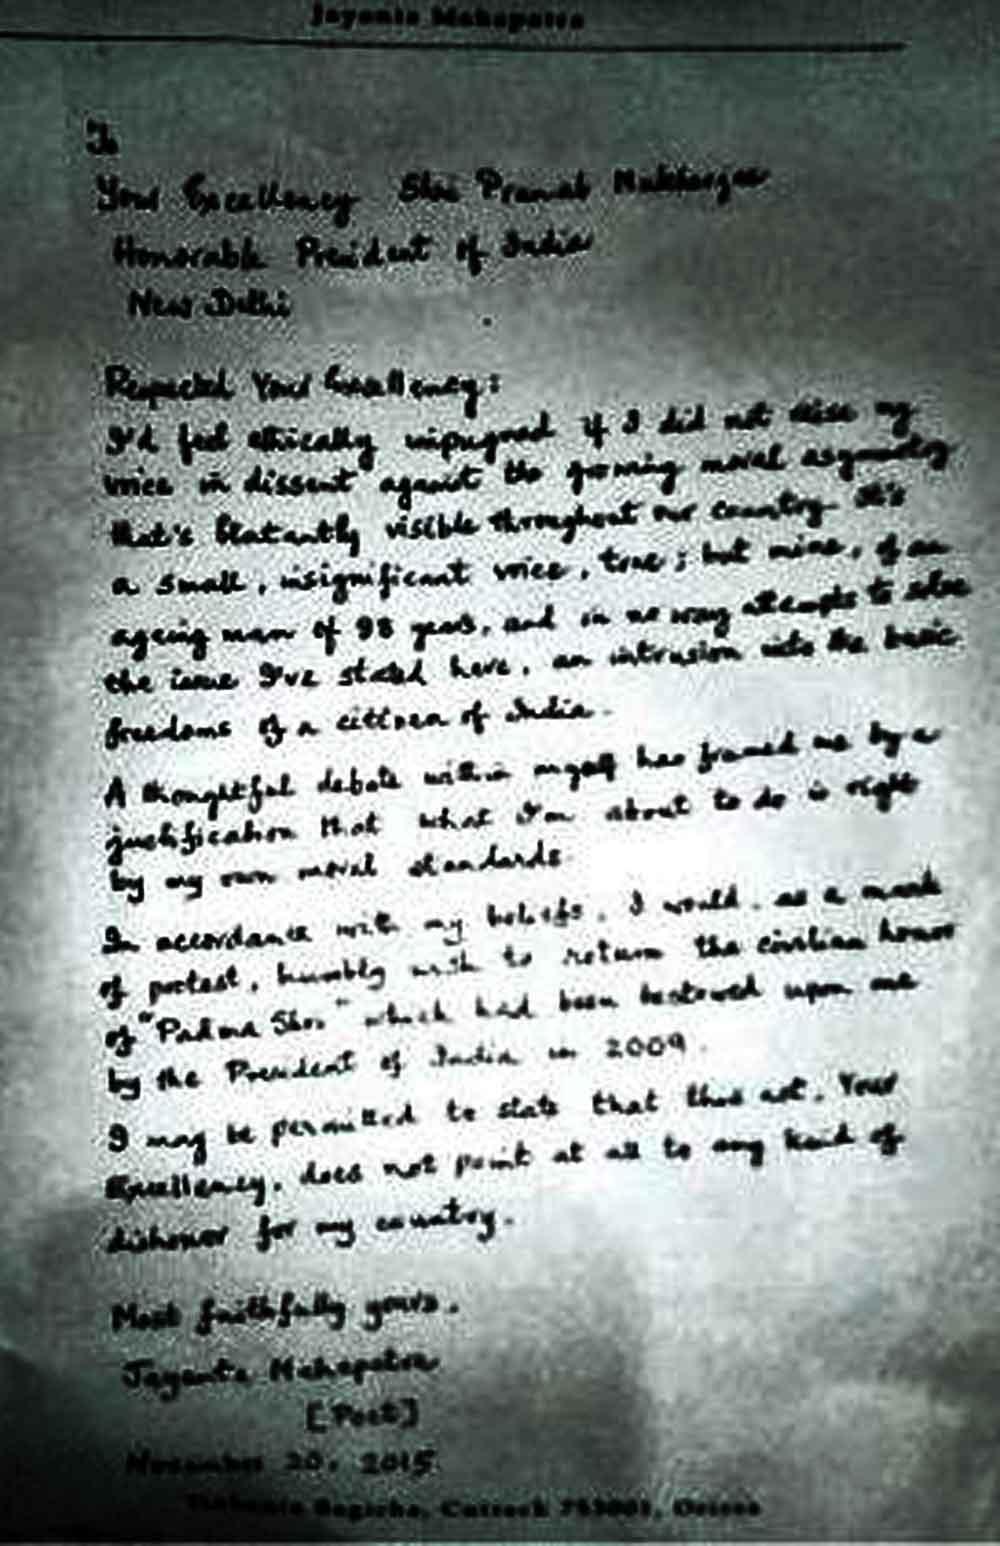 Jayanta Mahapatra
To
Your Excellency Shri Pranab Mukherjee
Honorable President of India
New Delhi
Respected Your Excellency:
I'd feel ethically impugned if I did not raise my
voice in dissent against the growing moral asymmetry
that's blatantly visible throughout our country. It's
a small, insignificant voice, true; but mine, of an
ageing man of 98 years, and in no way attempts to solve
the issue I've stated here, an intrusion into the basic
freedoms of a citizen of India.
A thoughtful debate within myself has framed me by a
justification that what I'm about to do is right
by my own moral standards.
In accordance with my beliefs, I would, as a mark
of protest, humbly wish to return the civilian honor
of "Padma Shri" which had been bestowed upon me
by the President of India in 2009.
I may be permitted to state that this act, Your
Excellency, does not point at all to any kind of
dishonor for my country.
Most faithfully yours,
Jayanta Mahapatra
[Poet]
November 20, 2015
Bagicha, Cuttack 753001, Orissa